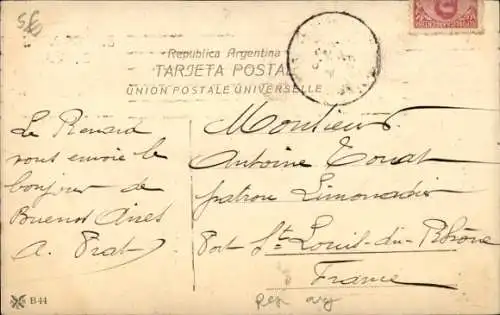 580
Republica Argentina
TARJETA POSTAL
UNION POSTALE UNIVERSELLE
Le Renard
vous envoie le
bonjour de
Buenos Aires
A. Prat
Monsieur
Antoine Touat
patron Limonadier
Port St. Louis-du-Rhône
France
B 44